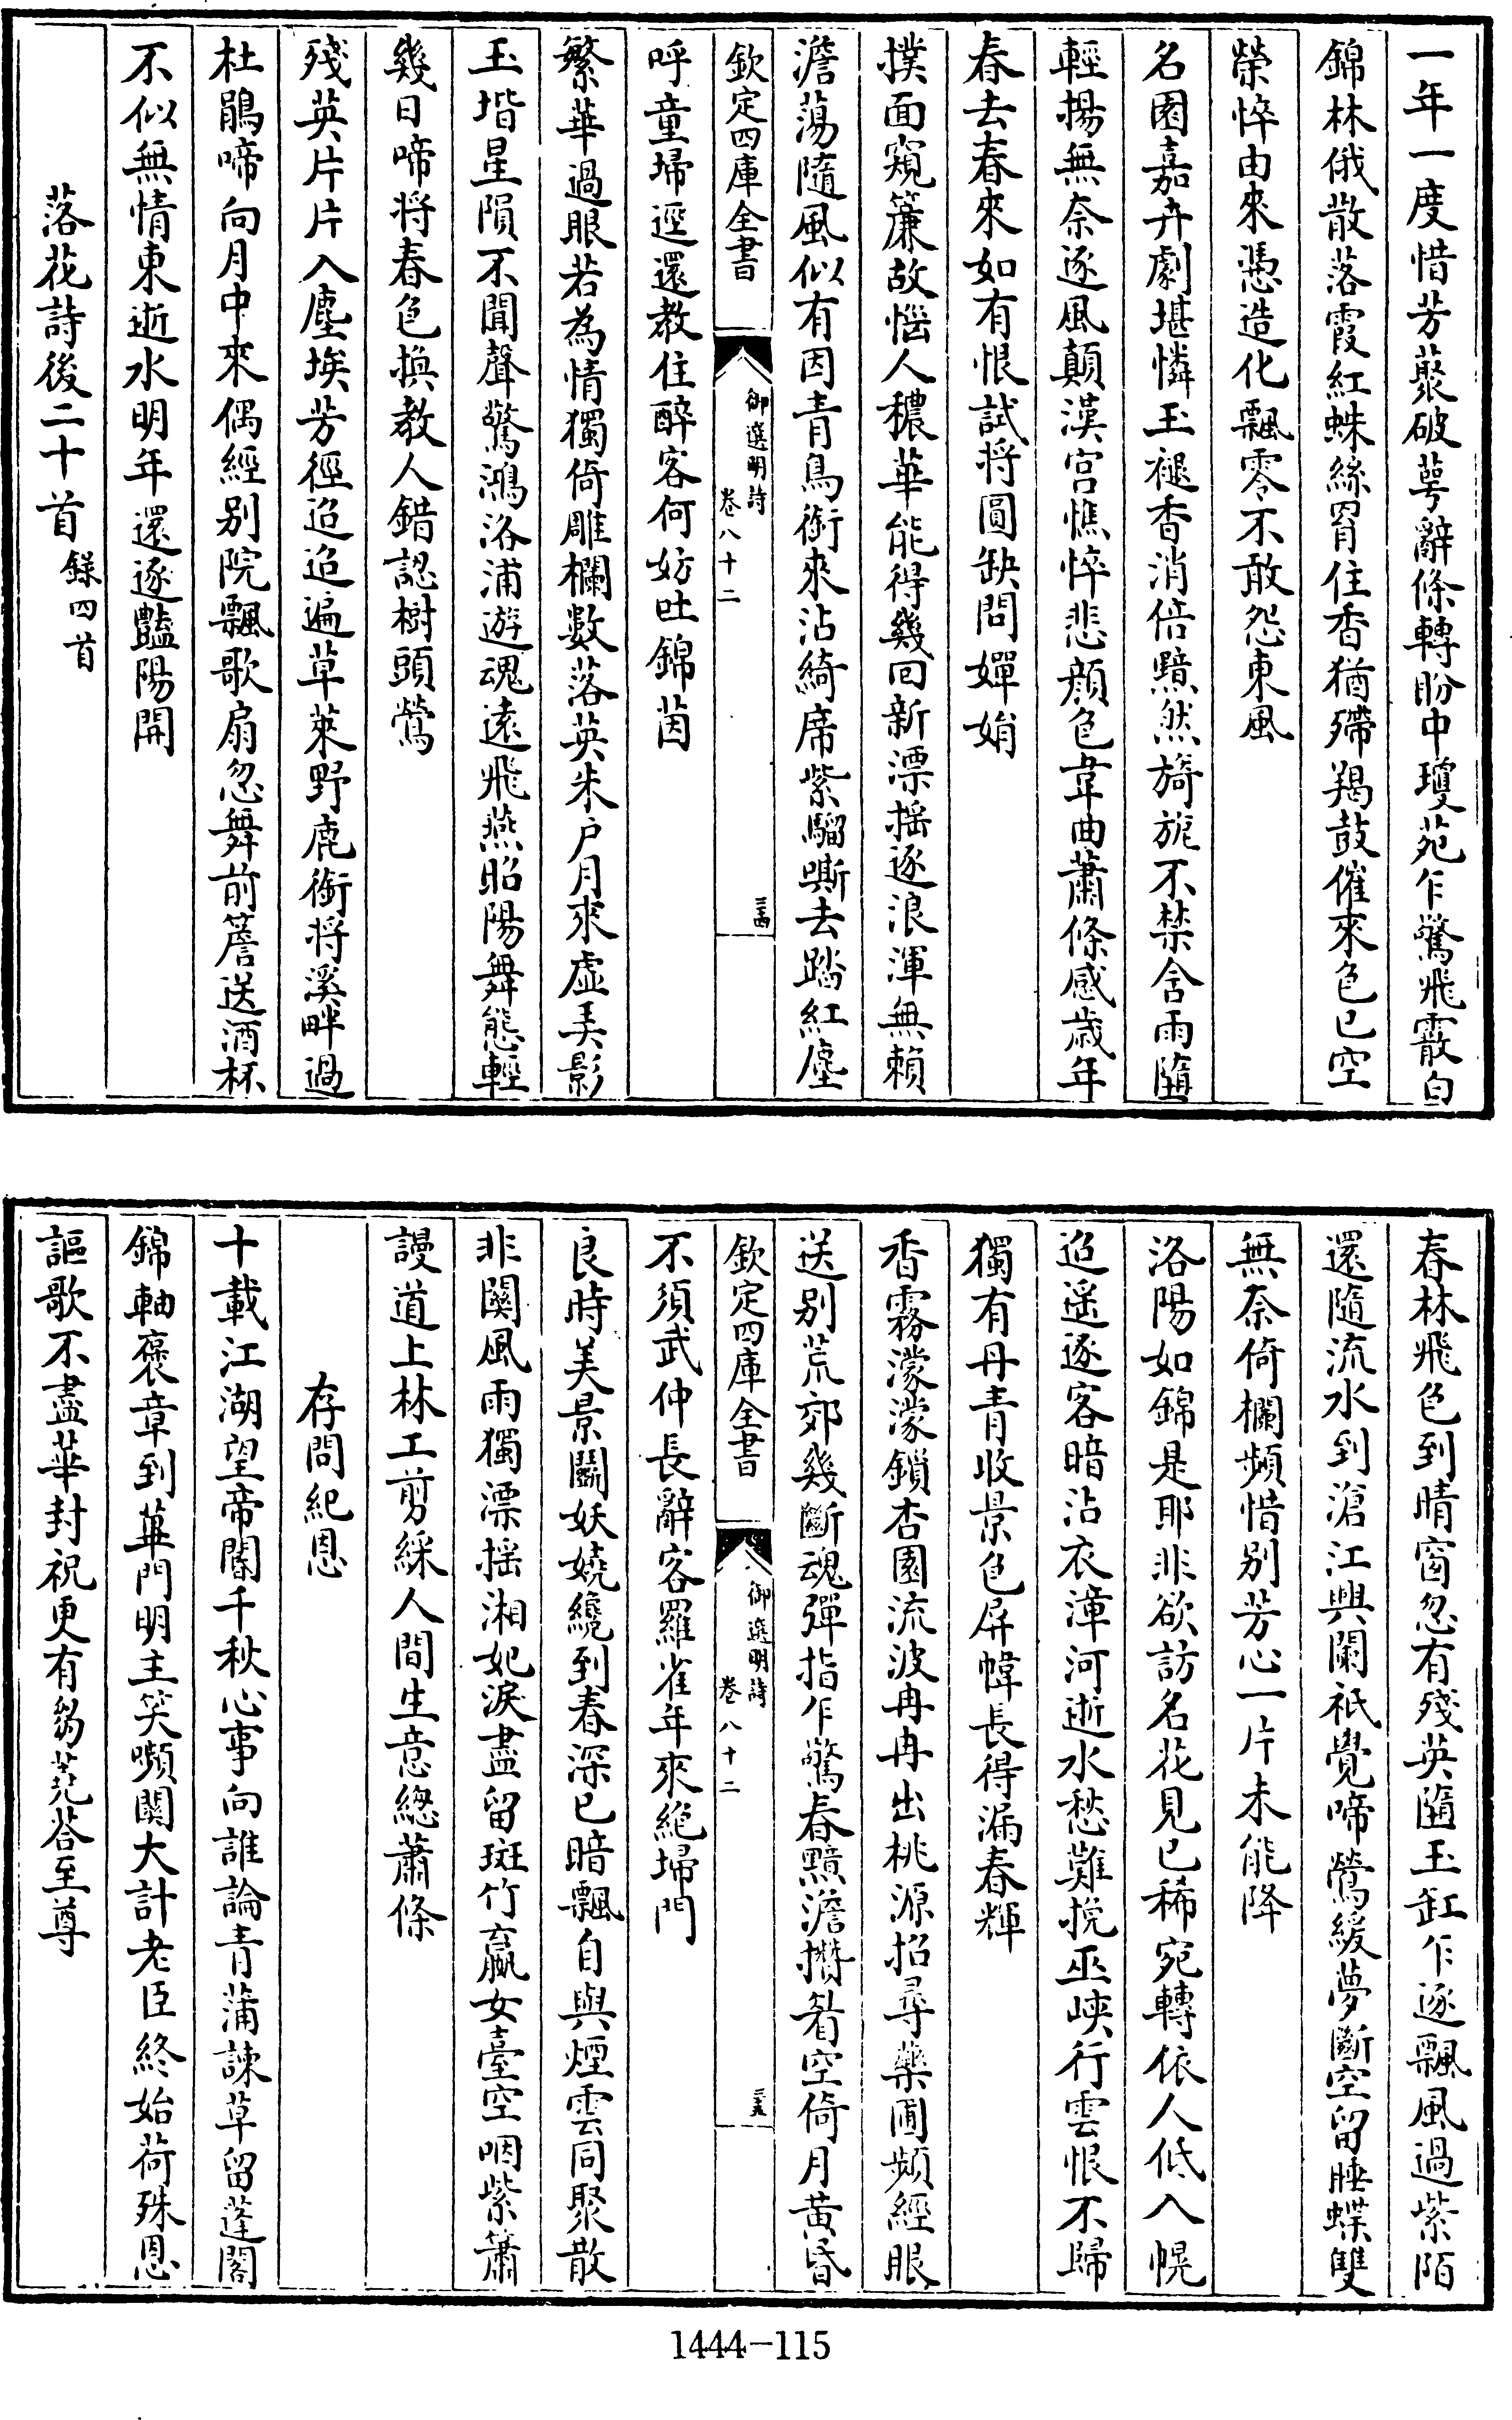 一年一度惜芳蘂破萼辭條轉盼中瓊苑乍驚飛霰白
錦林俄散落霞紅蛛絲罥住香猶殢羯鼓催來色已空
榮悴由來憑造化飄零不敢怨東風
名園嘉卉劇堪憐玉褪香消倍黯然旖旎不禁含雨墮
輕揚無奈逐風顛漢宫憔悴悲顔色韋曲蕭條感歳年
春去春來如有恨試將圓缺問嬋娟
撲面窺簾故惱人穠華能得幾回新漂揺逐浪渾無賴
澹蕩隨風似有因青鳥銜來沾綺席紫騮嘶去踏紅塵
欽定四庫全書
御選明詩
卷八十二
三四
呼童埽逕還教住醉客何妨吐錦茵
繁華過眼若為情獨倚雕欄數落英朱户月來虚弄影
玉堦星隕不聞聲驚鴻洛浦遊魂遠飛燕昭陽舞態輕
幾日啼將春色換教人錯認樹頭鶯
殘英片片入塵埃芳徑迢迢遍草萊野鹿銜將溪畔過
杜鵑啼向月中來偶經别院飄歌扇忽舞前簷送酒杯
不似無情東逝水明年還逐豔陽開
落花詩後二十首錄四首
春林飛色到晴窗忽有殘英墮玉缸乍逐飄風過紫陌
還隨流水到滄江興闌祇覺啼鶯緩夢斷空留睡蝶雙
無奈倚欄頻惜别芳心一片未能降
洛陽如錦是耶非欲訪名花見已稀宛轉依人低入幌
迢遥逐客暗沾衣漳河逝水愁難挽巫峽行雲恨不歸
獨有丹青收景色屏幃長得漏春輝
香霧濛濛鎖杏園流波冉冉出桃源招尋藥圃頻經眼
送别荒郊幾斷魂彈指乍驚春黯澹攢眉空倚月黄昏
欽定四庫全書
御選明詩
卷八十二
三五
不須武仲長辭客羅雀年來絶埽門
良時美景鬭妖嬈纔到春深已暗飄自與煙雲同聚散
非關風雨獨漂揺湘妃淚盡留斑竹嬴女臺空咽紫簫
謾道上林工剪綵人間生意總蕭條
存問紀恩
十載江湖望帝閽千秋心事向誰論青蒲諫草留蓬閣
錦軸褒章到蓽門明主笑嚬關大計老臣終始荷殊恩
謳歌不盡華封祝更有芻蕘荅至尊
1444-115